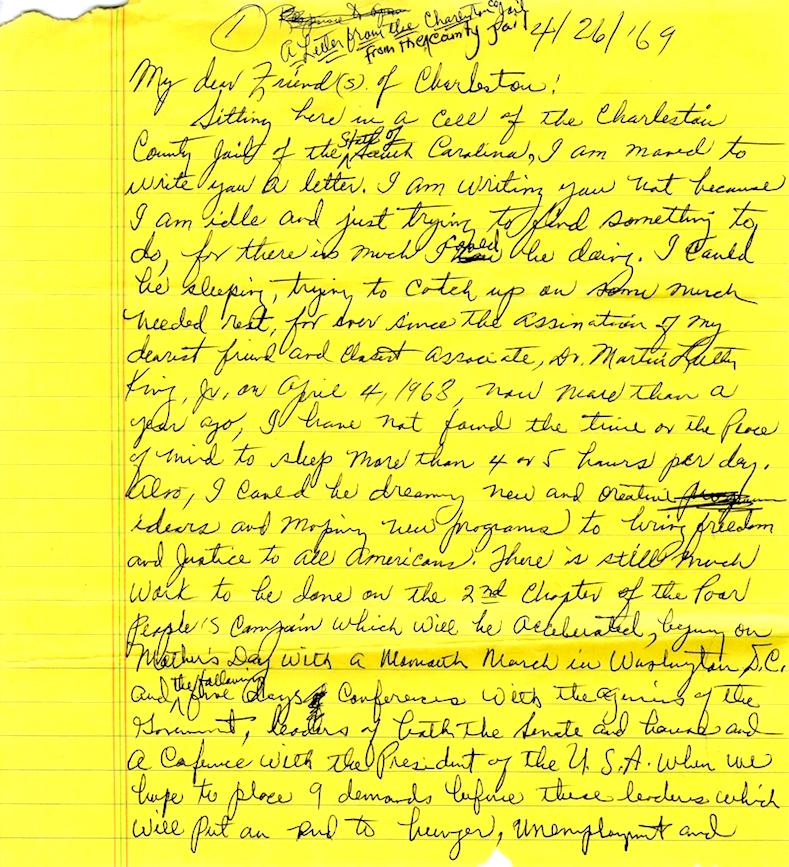 ① A Letter from the Charleston Co. Jail 4/26/'69
from the County Jail
My dear Friend(s) of Charleston!
Sitting here in a cell of the Charleston
County Jail of the State of South Carolina, I am moved to
write you a letter. I am writing you not because
I am idle and just trying to find something to
do, for there is much I could be doing. I could
be sleeping, trying to catch up on some much
needed rest, for ever since the assination of my
dearest friend and closest associate, Dr. Martin Luther
King, Jr. on April 4, 1968, now more than a
year ago, I have not found the time or the peace
of mind to sleep more than 4 or 5 hours per day.
Also, I could be dreaming new and creative
idears and moping new programs to bring freedom
and Justice to all Americans. There is still much
work to be done on the 2nd Chapter of the Poor
People's Campain which will be accelerated, begining on
Mother's Day with a Mamouth March in Washington D.C.
and the following five days Conferences with the agencies of the
Goverment, leaders of both the Senate and house and
a Cofernce with the President of the U.S.A. when we
hope to place 9 demands before these leaders which
will put an end to hunger, unemployment and